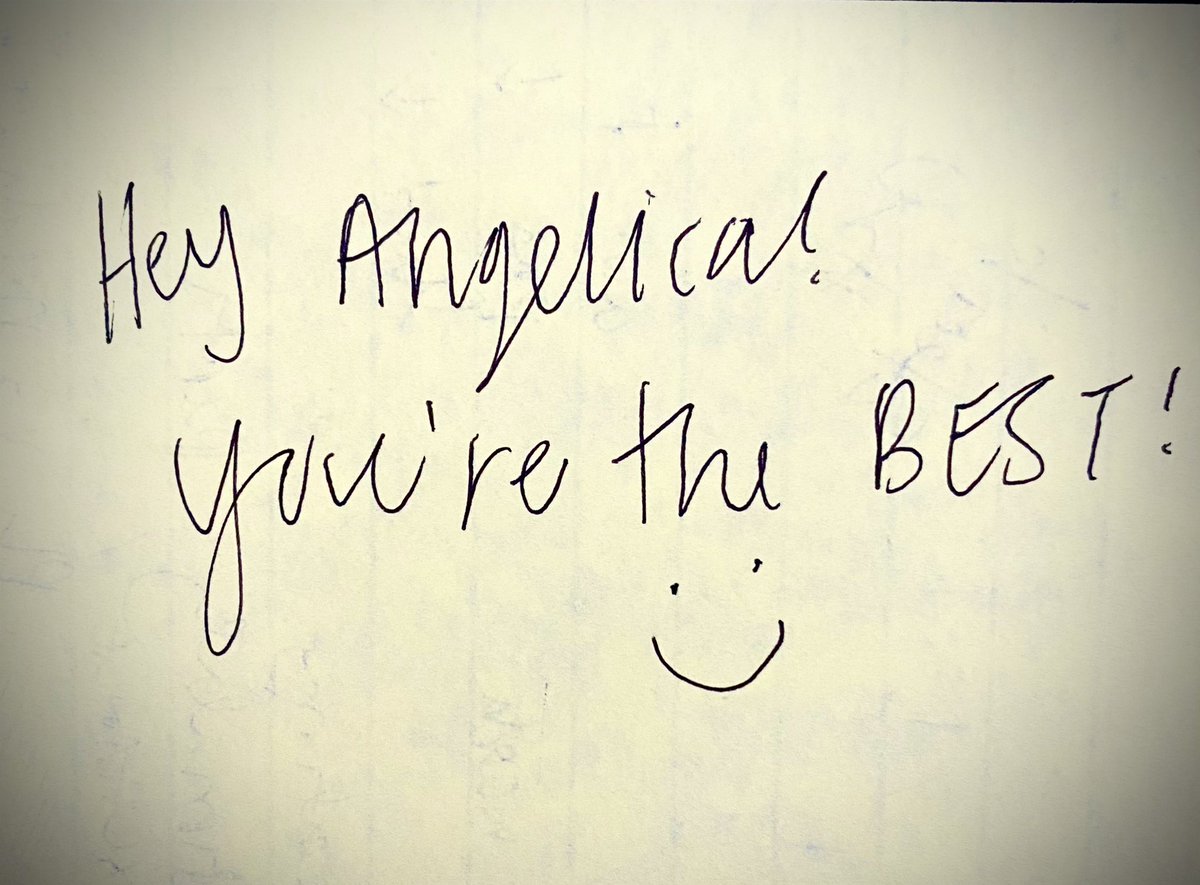 Hey Angelica!
you're the BEST!